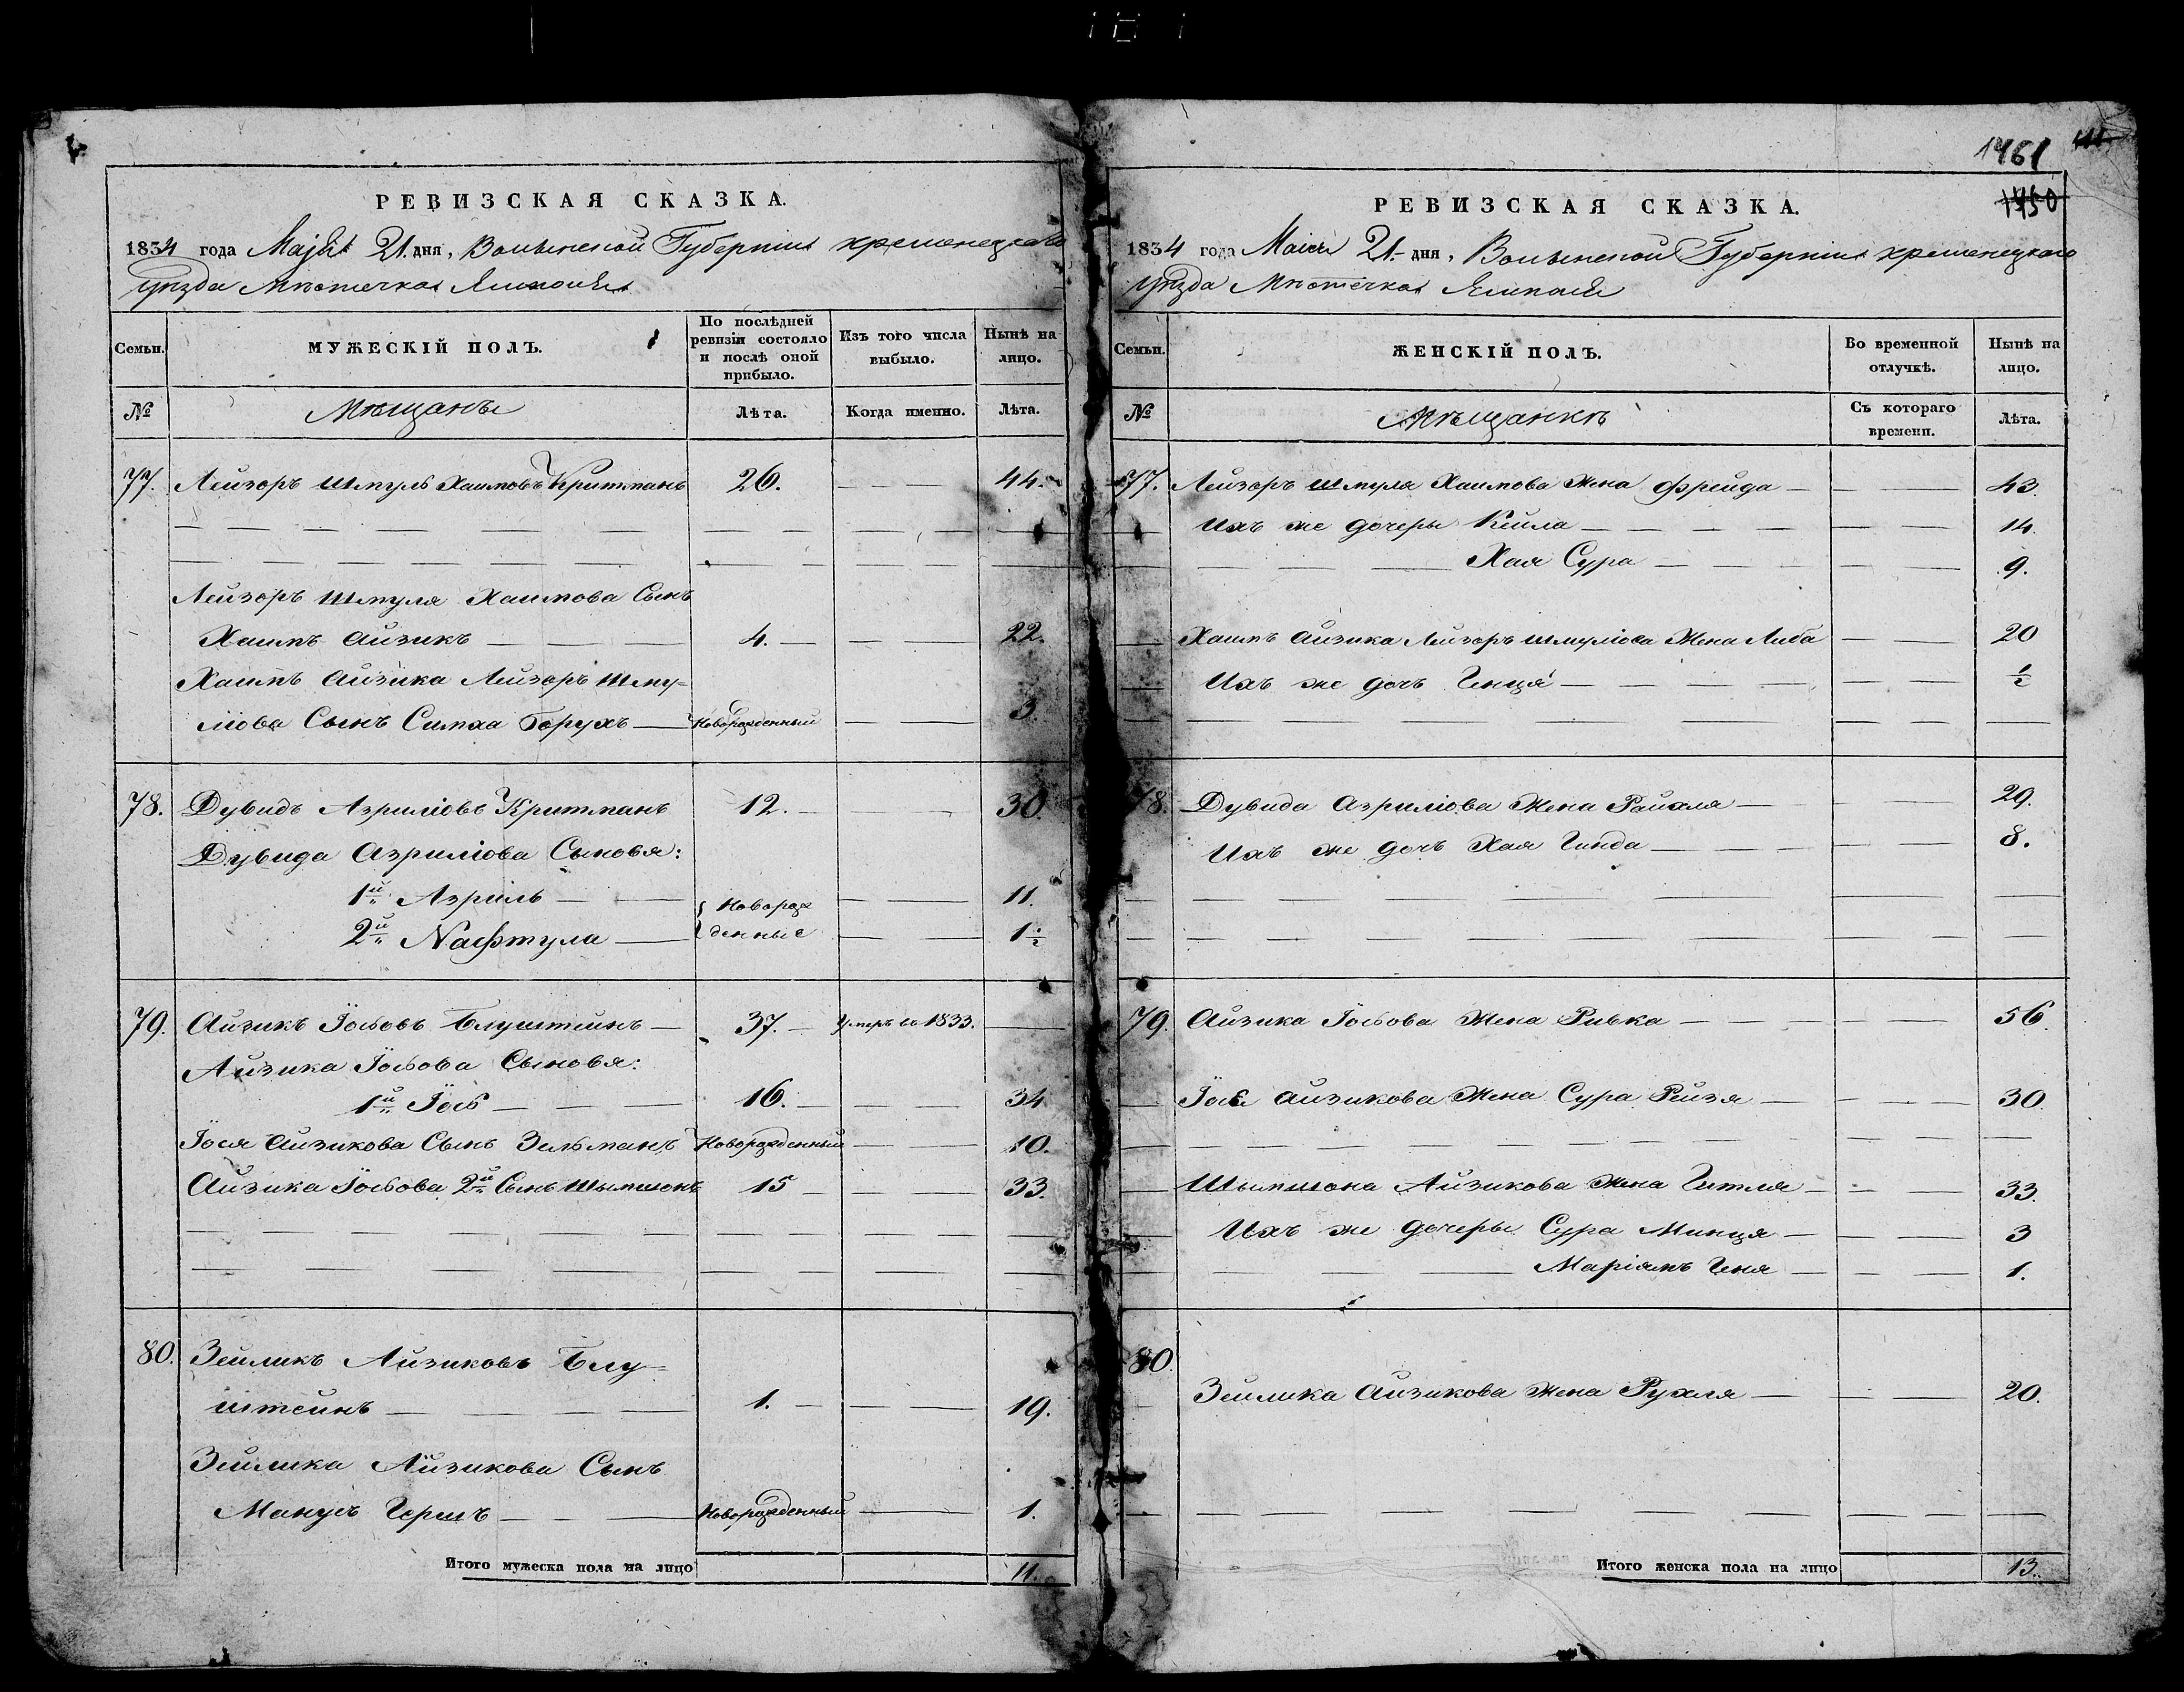 РЕВИЗСКАЯ СКАЗКА.
1834 года Маја 21. дня, Волынской Губерніи кременецкаго
уѣзда Мѣстечка Ямполя
Семьи. МУЖЕСКІЙ ПОЛЪ. По послѣдней ревизіи состояло и послѣ оной прибыло. Изъ того числа выбыло. Нынѣ на лицо.
№ Мѣщанъ Лѣта. Когда именно. Лѣта.
77. Лейзоръ Шмуль Хаимовъ Критманъ 26. 44.
Лейзоръ Шмуля Хаимова Сынъ
Хаимъ Айзикъ 4. 22.
Хаимъ Айзика Лейзоръ Шму-
лiова Сынъ Симха Борухъ Новорожденный 3
78. Дувидъ Азрилiовъ Критманъ 12. 30.
Дувида Азрилiова Сыновя:
1й Азрiль Новорож 11.
2й Нафтула денные 1½
79. Айзикъ Іосьовъ Блуштинъ 37. Умеръ въ 1833.
Айзика Іосьова Сыновя:
1й Іось 16. 34
Іося Айзикова Сынъ Зельманъ Новорожденный 10.
Айзика Іосьова 2й Сынъ Шымшонъ 15 33.
80. Зейликъ Айзиковъ Блу-
штейнъ 1. 19.
Зейлика Айзикова Сынъ
Манусъ Гершъ Новорожденный 1.
Итого мужеска пола на лицо 11.
1461
1450
РЕВИЗСКАЯ СКАЗКА.
1834 года Маія 21. дня, Волынской Губерніи кременецкаго
уѣзда Мѣстечка Ямполя
Семьи. ЖЕНСКІЙ ПОЛЪ. Во временной отлучкѣ. Нынѣ на лицо.
№ Мѣщанкъ Съ котораго времени. Лѣта.
77. Лейзоръ Шмуля Хаимова Жена Фрейда 43.
Ихъ же дочеры Кейла 14.
Хая Сура 9.
Хаимъ Айзика Лейзоръ Шмулiова Жена Либа 20
Ихъ же дочъ Генця ½
78. Дувида Азрилiова Жена Райхля 29.
Ихъ же дочъ Хая Гинда 8.
79. Айзика Іосьова Жена Ривка 56.
Іося Айзикова Жена Сура Рейзя 30.
Шымшона Айзикова Жена Гитля 33.
Ихъ же дочеры Сура Минця 3
Маріямъ Геня 1.
80.
Зейлика Айзикова Жена Рухля 20.
Итого женска пола на лицо 13.